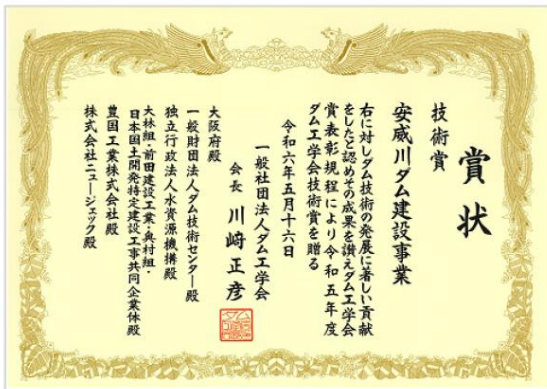 賞状
技術賞
安威川ダム建設事業
右に対しダム技術の発展に著しい貢献
をしたと認めその成果を讃えダム工学会
賞表彰規程により令和五年度
ダム工学会技術賞を贈る
令和六年五月十六日
一般社団法人ダム工学会
会長 川﨑正彦
大阪府殿
一般財団法人ダム技術センター殿
独立行政法人水資源機構殿
大林組・前田建設工業・奥村組・
日本国土開発特定建設工事共同企業体殿
豊国工業株式会社殿
株式会社ニュージェック殿